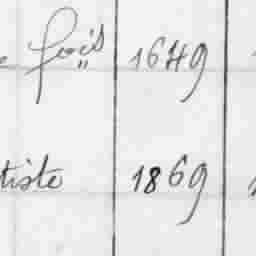 fois 1649
tiste 1869